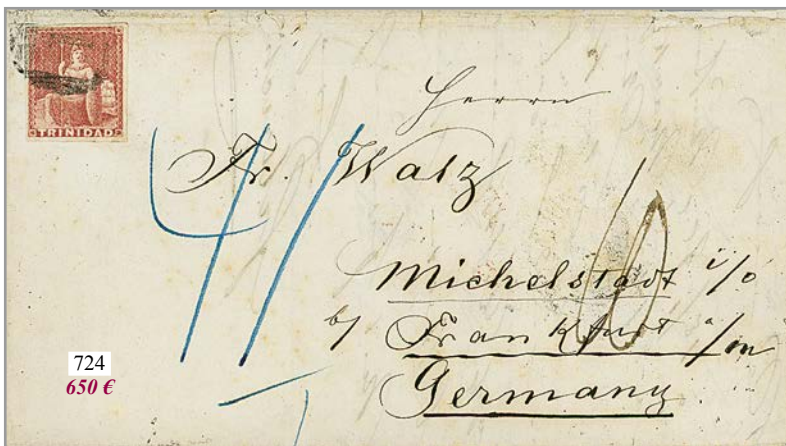 TRINIDAD
Herrn
Fr. Walz
Michelstadt i/o
b/ Frankfurt a/m
Germany
724
650 €